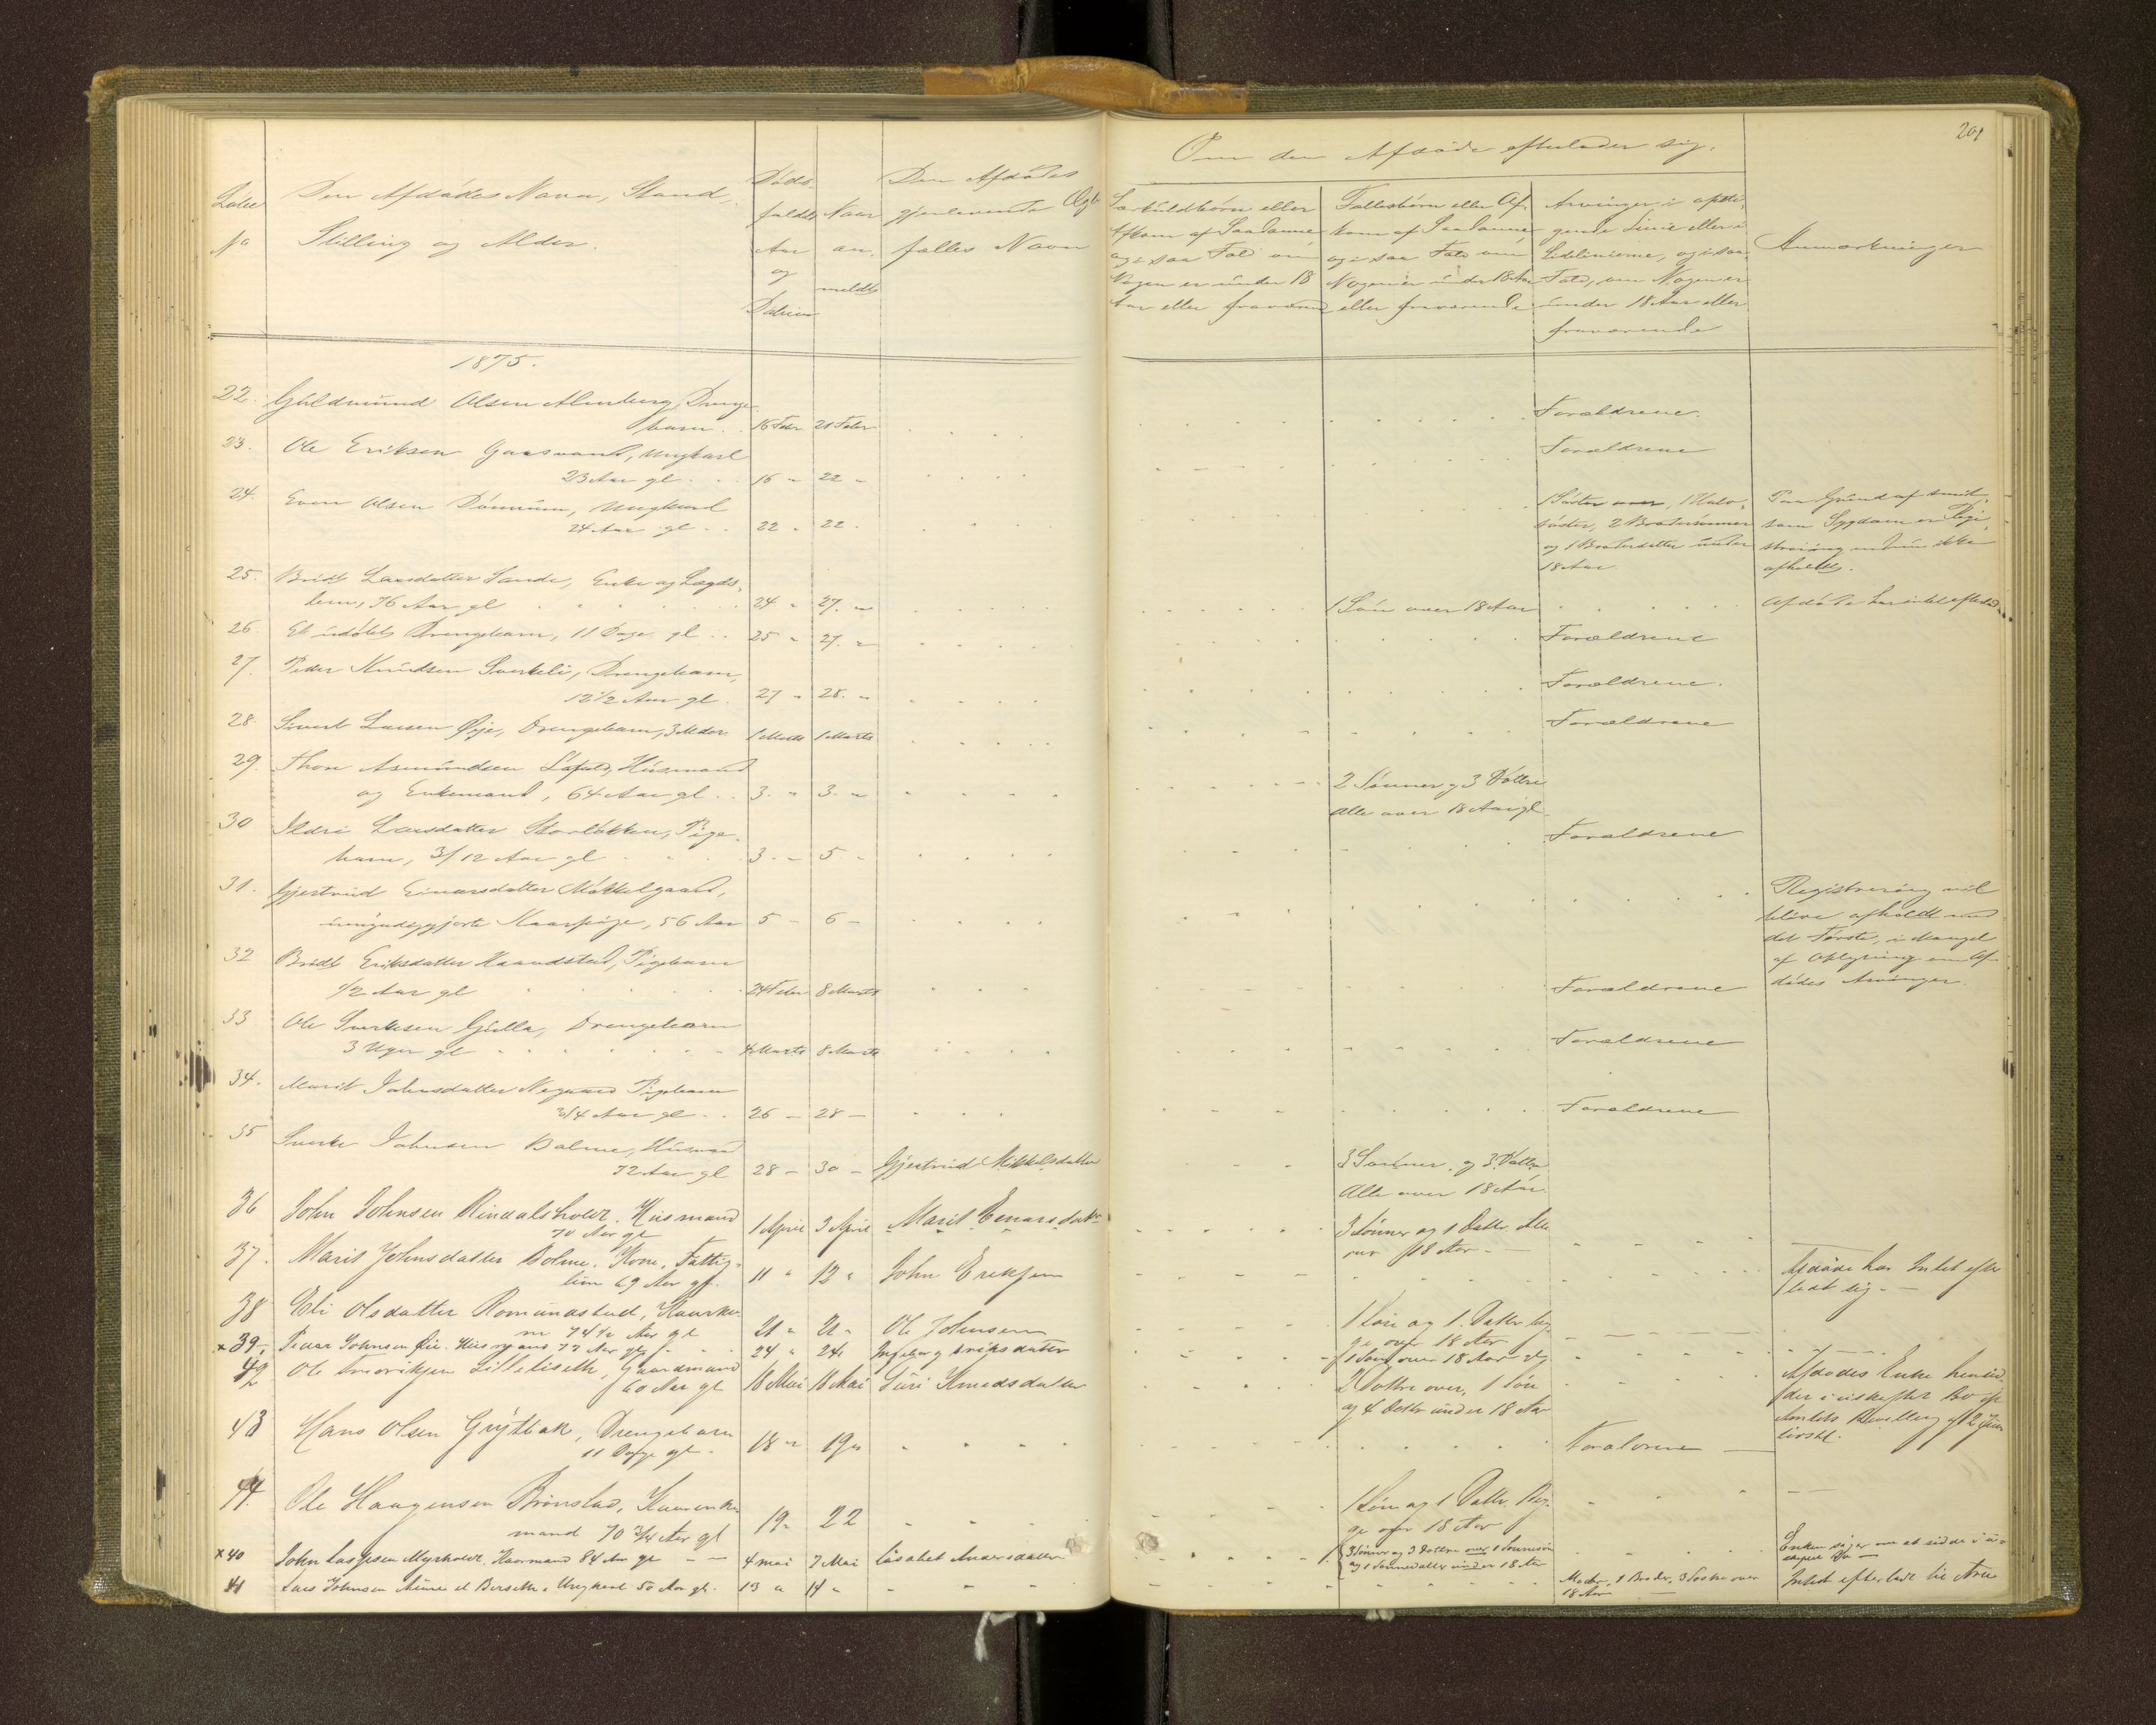 201
Om den Afdøde efterlader sig.
Løbe No
Den Afdødes Navn, Stand,
Stilling og Alder.
Døds-
faldets
Aar
og
Datum
Naar
an-
meldt
Den Afdødes
gjenlevende Ægte-
fælles Navn
Særkuldbørn eller
Afkom af Saadanne
og i saa Fald om
Nogen er under 18
Aar eller fraværende
Fællesbørn eller Af-
kom af Saadanne,
og i saa Fald om
Nogen er under 18 Aar
eller fraværende
Arvinger i opsti-
gende Linie eller i
Sidelinierne, og i saa
Fald, om Nogen er
under 18 Aar eller
fraværende
Anmærkninger
1875.
22. Guldmund Olsen Almberg, Drenge-
barn 16 Febr 21 Febr Forældrene.
23. Ole Eriksen Gaasvand, Ungkarl
23 Aar gl. 16 " 22 " Forældrene
24. Even Olsen , Ungkarl
24 Aar gl 22 " 22 "
1 Søster over, 1 Halv-
søster, 2 Brodersønner
og 1 Broderdatter under
18 Aar
Paa Grund af smit-
som Sygdom er Regi-
strering endnu ikke
afholdt.
25. Bridt Larsdatter Sande, Enke og Lægds-
lem, 76 Aar gl 24 " 27 " 1 Søn over 18 Aar Afdøde har intet efterladt
26. Et udøbt Drengebarn, 11 Dage gl 25 " 27 " Forældrene
27. Peder Knudsen Sverkeli, Drengebarn,
12 1/2 Aar gl 27 " 28 " Forældrene.
28. Sivert Larsen Øye, Drengebarn, 3 Mdr 1 Marts 1 Marts Forældrene
29. Thore Asmundsen Løfald, Husmand
og Enkemand, 64 Aar gl 3. " 3. "
2 Sønner og 3 Døttre
Alle over 18 Aar gl
30 Ildri Larsdatter Storløkken, Pige-
barn, 3/12 Aar gl 3 - 5 - Forældrene
31. Gjertrud Einarsdatter Mokkelgaard,
umyndiggjorte Kaarpige, 56 Aar 5 - 6 -
Registrering vil
blive afholdt med
det Første, i Mangel
af Oplysning om Af-
dødes Arvinger.
32 Bridt Eriksdatter Haandstad, Pigebarn
1/2 Aar gl 24 Febr 8 Marts Forældrene
33 Ole Sverkesen Gulla, Drengebarn
3 Uger gl 4 Marts 8 Marts Forældrene
34. Marit Johnsdatter Negaard Pigebarn
3/4 Aar gl 26 - 28 - Forældrene
35 Sverke Johnsen Bolme, Husmand
72 Aar gl 28 - 30 - Gjertrud Mikkelsdatter
3 Sønner og 3 Døttre
Alle over 18 Aar.
36 John Johnsen Rindalsholdt. Husmand
70 Aar gl 1 April 3 April Marit Einarsdatter
3 Sønner og 1 Datter Alle
over 18 Aar -
37. Marit Johnsdatter Bolme. Kone. Fattig-
lem 69 Aar gl. 11 " 12 " John Eriksen
Afdøde har Intet efter
ladt sig. -
38 Eli Olsdatter Romundstad, Kaarko-
ne 74 1/2 Aar gl 21 " 21 " Ole Johnsen
1 Søn og 1 Datter beg-
ge over 18 Aar
x 39. Peder Johnsen Husmand 77 Aar gl 24 " 24 Ingeborg Eriksdatter
1 Søn over 18 Aar
42 Ole Lilleliseth, Gaardmand
60 Aar gl 18 Mai 18 Mai Siri Knudsdatter
2 Døttre over, 1 Søn
og 4 Døttre under 18 Aar
Afdødes Enke hensid-
der i uskiftet Bo
Amtets Bevilling af 2 Juni

43 Hans Olsen Grytbak, Drengebarn
11 Dage gl - 18 " 19 " Forældrene
44. Ole Haagensen Brønstad, Kaarenke-
mand 70 3/4 Aar gl 19 " 22
1 Søn og 1 Datter. Beg-
ge over 18 Aar
x 40 John Larsen Myrholdt. Kaarmand 84 Aar gl 4 Mai 7 Mai Lisabet Andersdatter
3 Sønner og 3 Døttre over 1 Sønnesøn
og 1 Sønnedatter under 18 Aar
Enken siger om at sidde i u-
skiftet Bo -
41 Lars Johnsen Bierseth. Ungkarl 50 Aar gl. 13 " 14 "
Moder, 1 Broder, 3 Søstre over
18 Aar
Intet efterladt til Arv